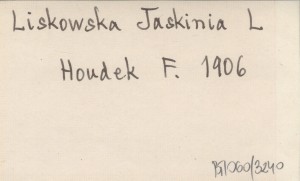 Liskowska Jaskinia L
Houdek F. 1906
BJ/060/3240